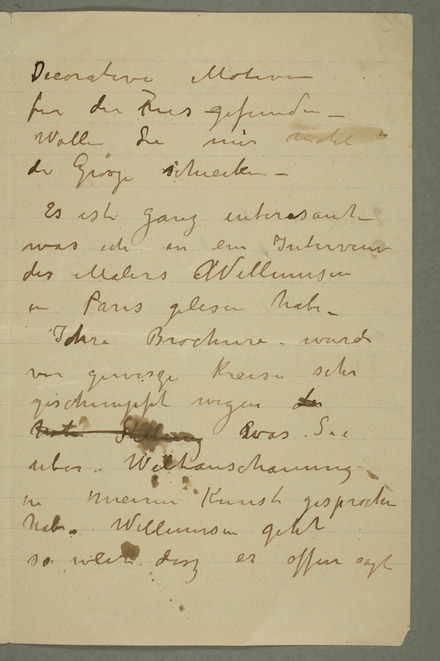 Decorative Motiven
für den Fries gefunden –
Wollen Sie mir nicht
die Grösze schicken –
Es ist ganz interesant
was ich in ein Interview
des Malers Willumsen
in Paris gelesen habe –
Ihre Brochure wurde
von gewisze Kreise sehr
geschimpft wegen des
was Sie
über Welthanschauung
in meine Kunst gesprochen
habe. Willumsen geht
so weit dasz er offen sagt